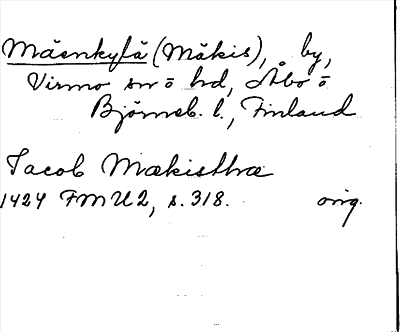 Mäenkylä (Mäkis), by,
Virmo sn ö hd, Åbo ö
Björneb. l., Finland
Jacob Mækisthræ
1424 FMU2, s. 318. orig.